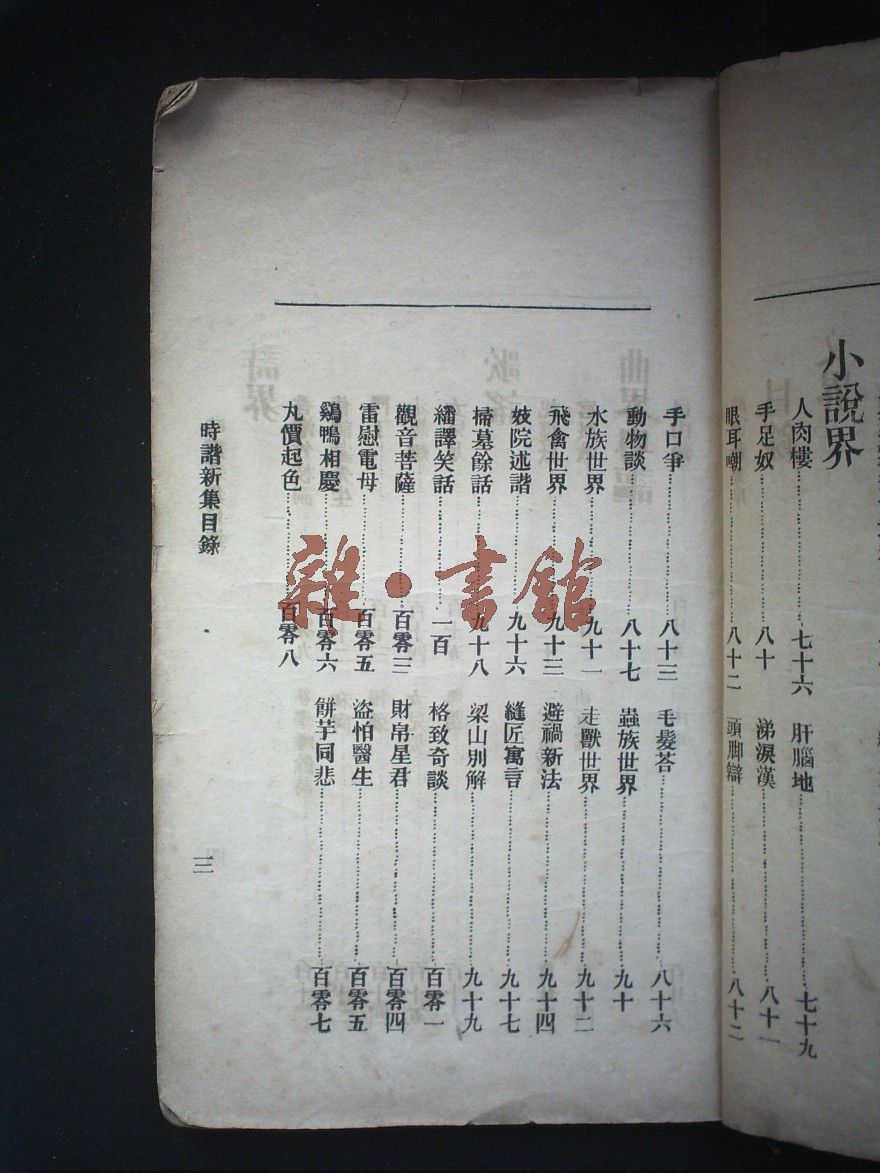 小說界
人肉樓 七十六 肝腦地 七十九
手足奴 八十 涕淚漢 八十一
眼耳嘲 八十二 頭脚辯 八十二
手口爭 八十三 毛髮荅 八十六
動物談 八十七 蟲族世界 九十
水族世界 九十一 走獸世界 九十二
飛禽世界 九十三 避禍新法 九十四
妓院述諧 九十六 縫匠寓言 九十七
掃墓餘話 九十八 梁山別解 九十九
繙譯笑話 一百 格致奇談 百零一
觀音菩薩 百零三 財帛星君 百零四
雷慰電母 百零五 盜怕醫生 百零五
鷄鴨相慶 百零六 餅芋同悲 百零七
丸價起色 百零八
時諧新集目錄 三
雜·書館